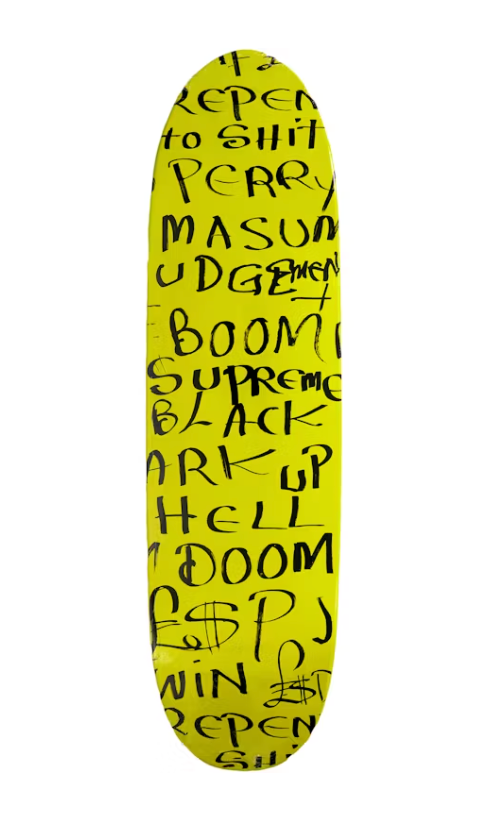 REPEN
to SHiT
PERRY
MASUM
UDGEMEN
T
BOOM
SUPREME
BLACK
ARK UP
HELL
DOOM
£$P J
WiN £$P
REPEN
SHi